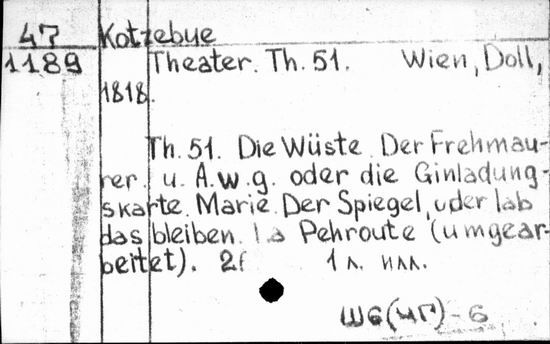 47 Kotzebue
1189 Theater. Th. 51. Wien, Doll,
1818.
Th. 51. Die Wüste. Der Frehmau-
rer. u. A.w.g. oder die Ginladung-
skarte. Marie. Der Spiegel, uder lab
das bleiben. La Pehroute (umgear-
beitet). 1 л. илл.